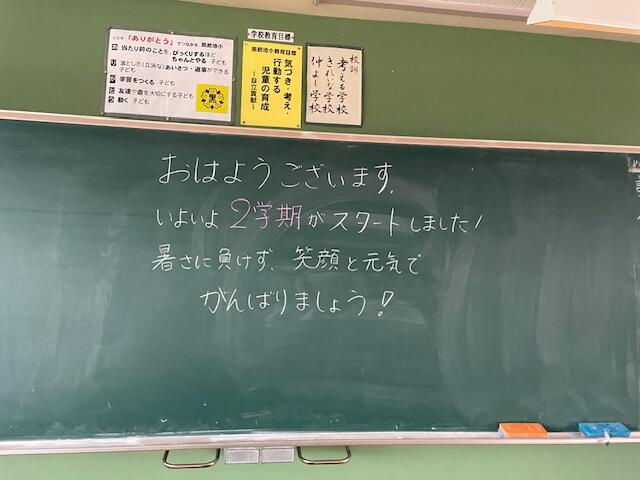 学校教育目標
「ありがとう」でつながる 黒髭地小
あ 当たり前のことを、びっくりするほど
ちゃんとやる 子ども
り 凛とした(立派な)あいさつ・返事ができる
子ども
が 学習をつくる 子ども
と 友達や命を大切にする子ども
う 動く 子ども
黒
教育目標
気づき・考え・
行動する
児童の育成
~自立貢献~
校訓
考える学校
きれいな学校
仲よし学校
おはようございます。
いよいよ2学期がスタートしました!
暑さに負けず、笑顔と元気で
がんばりましょう!